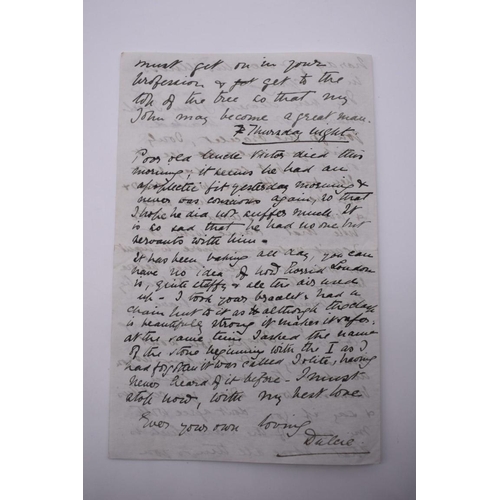 must get on in your
profession & get to the
top of the tree so that my
John may become a great man.
Thursday night
Poor old Uncle Victor died this
morning, it seems he had an
apoplectic fit yesterday morning &
never was conscious again, so that
I hope he did not suffer much. It
is so sad that he had no one but
servants with him.
It has been baking all day, you can
have no idea of how horrid London
is, quite stuffy & all the air used
up. I took your bracelet & had a
chain put to it as although the clasp
is beautifully strong it makes it safer.
at the same time I asked the name
of the stone beginning with the I as I
had forgotten it was called Iolite, having
never heard of it before - I must
stop now, with my best love
Ever your own loving
Dulcie.